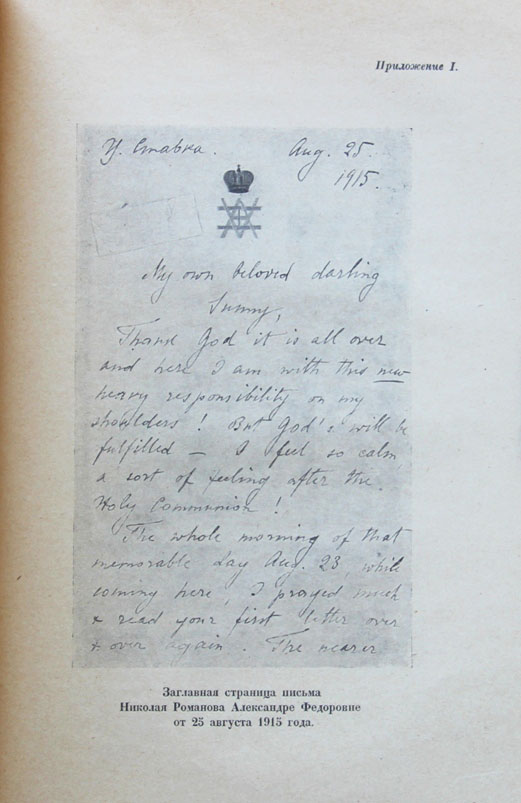 Приложение I.
Ц. Ставка.
Aug. 25.
1915.
My own beloved darling
Sunny,
Thank God it is all over
and here I am with this new
heavy responsibility on my
shoulders! But God's will be
fulfilled — I feel so calm,
a sort of feeling after the
Holy Communion!
The whole morning of that
memorable day Aug. 23, while
coming here, I prayed much
& read your first letter over
& over again. The nearer
Заглавная страница письма
Николая Романова Александре Федоровне
от 25 августа 1915 года.